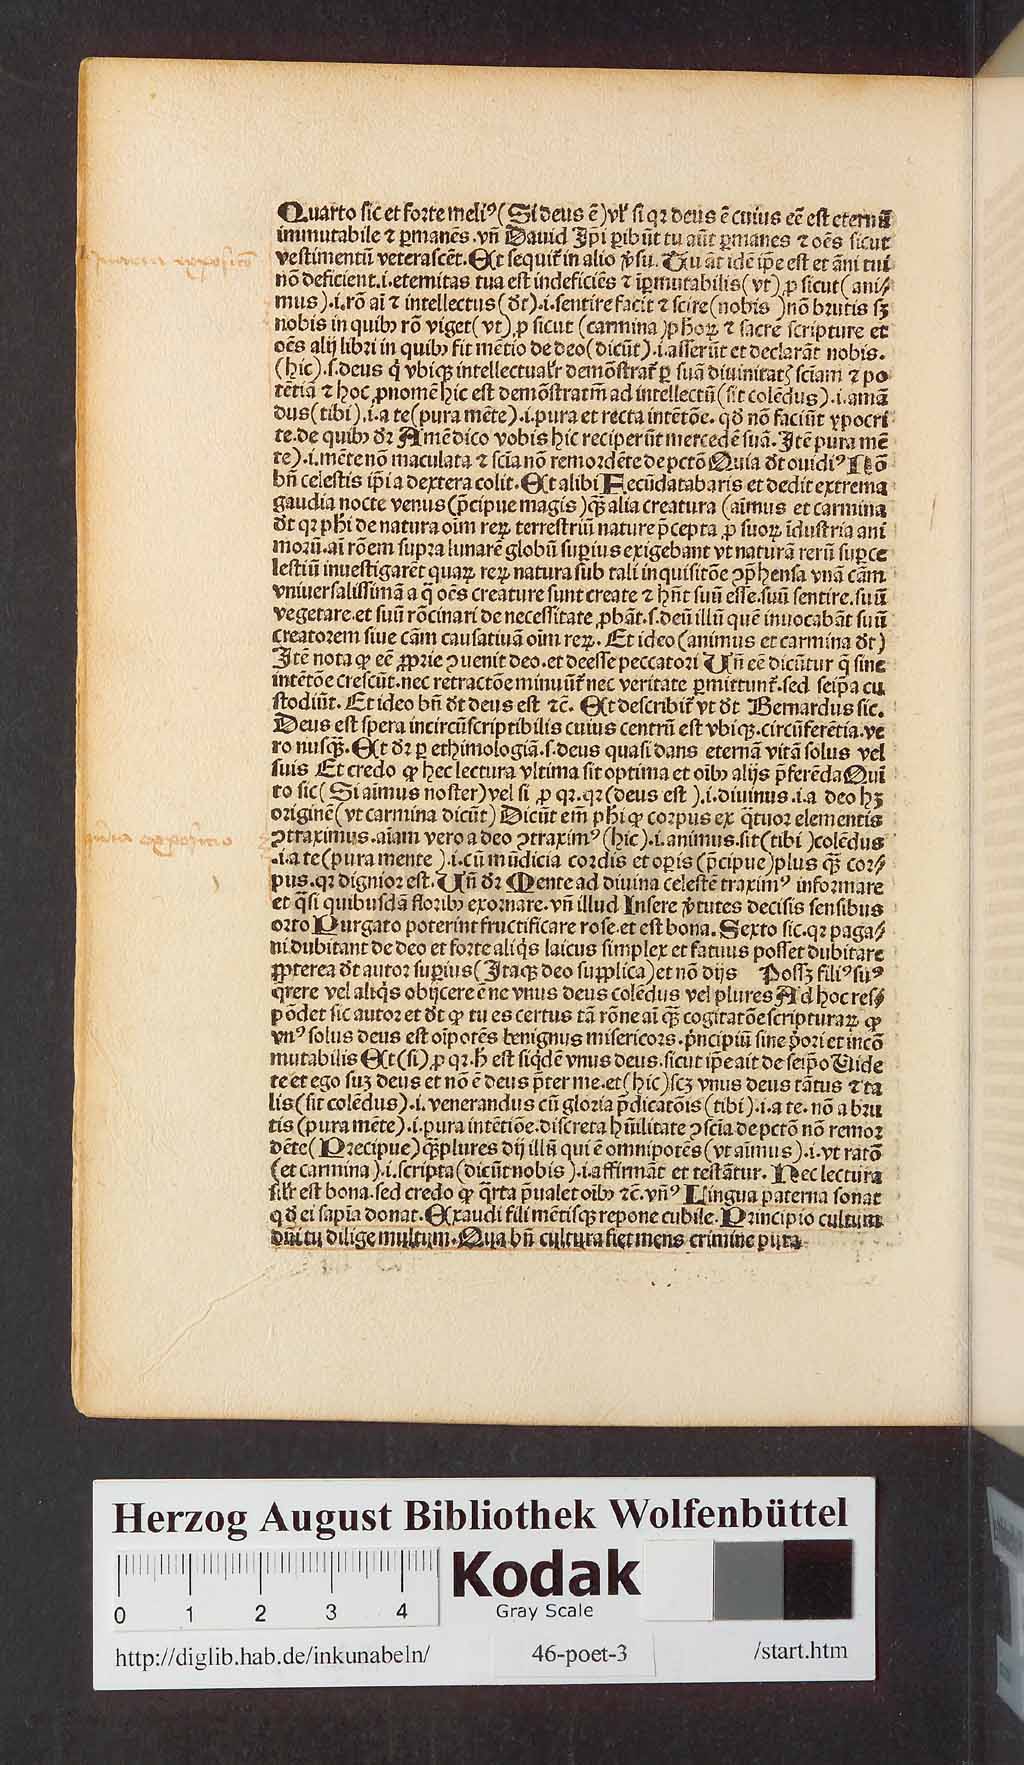 Quarto sic̄ et forte meliꝰ (Si deus ē) vl̓ si qꝛ deus ē cuius eē est eternū
immutabile ⁊ ꝑmanēs. vn̄ Dauid Ip̄i ꝑibūt tu aūt ꝑmanes ⁊ oēs sicut
vestimentū veterascēt. Et sequit̄ in alio v̓su. Tu āt idē ip̄e est et āni tui
nō deficient .i. eternitas tua est indeficiēs ⁊ iꝑmutabilis (vt) ꝓ sicut (ani⸗
mus) .i. rō ai̅ ⁊ intellectus (d̄t) .i. sentire facit ⁊ scire (nobis) nō brutis sꝫ
nobis in quibꝫ rō viget (vt) ꝓ sicut (carmina) pħoꝝ ⁊ sacre scripture et
oēs alij libri in quibꝫ fit mētio de deo (dicūt) .i. asserūt et declarāt nobis.
(hic) .s. deus q̇ vbiqꝫ intellectual̓r demōstrat̄ ꝑ suā diuinitatē sciam ⁊ po
tētiā ⁊ hoc ꝓnomē hic est demōstratiū ad intellectū (sit colēdus) .i. amā
dus (tibi) .i. a te (pura mēte) .i. pura et recta intētōe. qd̄ nō faciūt ypocri
te. de quibꝫ d̄r Amē dico vobis hic reciperūt mercedē suā. Itē pura mē
te) .i. mēte nō maculata ⁊ scīa nō remordēte de pctō Quia d̄t ouidiꝰ Nō
bn̄ celestis ip̄ia dextera colit. Et alibi Fecūdatabaris et dedit extrema
gaudia nocte venus (p̄cipue magis) qꝫ alia creatura (aīmus et carmina
d̄t qꝛ pħi de natura oīm reꝝ terrestriū nature p̄cepta ꝓ suoꝝ īdustria ani
morū. aī rōem supra lunarē globū suꝑius exigebant vt naturā rerū suꝑce
lestiū inuestigarēt quaꝝ reꝝ natura sub tali inquisitōe ꝯp̄hensa vnā cām
vniuersalissimā a q̄ oēs creature sunt create ⁊ hn̄t suū esse. suū sentire. suū
vegetare. et suū rōcinari de necessitate ꝓbāt .s. deū illū quē inuocabāt suū
creatorem siue cām causatiuā oīm reꝝ. Et ideo (animus et carmina d̄t)
Itē nota ꝙ eē ꝓprie ꝯuenit deo. et deesse peccatori Vn̄ eē dicūtur q̄ sine
intētōe crescūt. nec retractōe minuūt̄ nec veritate ꝑmittunt̄. sed seip̄a cu
stodiūt. Et ideo bn̄ d̄t deus est ⁊c̄. Et describit̄ vt d̄t Bernardus sic.
Deus est spera incircūscriptibilis cuius centrū est vbiqꝫ. circūferētia. ve
ro nusqꝫ. Et d̄r ꝑ ethimologiā .s. deus quasi dans eternā vitā solus vel
suis Et credo ꝙ hec lectura vltima sit optima et oībꝫ alijs p̄ferēda Quī
to sic (Si aīmus noster) vel si ꝓ qꝛ. qꝛ (deus est) .i. diuinus .i. a deo hꝫ
originē (vt carmina dicūt) Dicūt em̄ pħi ꝙ corpus ex q̄tuor elementis
ꝯtraximus. aīam vero a deo ꝯtraximꝰ (hic) .i. animus. sit (tibi) colēdus
.i. a te (pura mente) .i. cū mūdicia cordis et oꝑis (p̄cipue) plus qꝫ cor⸗
pus. qꝛ dignior est. Vn̄ d̄r Mente ad diuina celestē traximꝰ informare
et q̄si quibusdā floribꝫ exornare. vn̄ illud Insere v̓tutes decisis sensibus
orto Purgato poterint fructificare rose. et est bona. Sexto sic. qꝛ paga⸗
ni dubitant de deo et forte aliq̓s laicus simplex et fatuus posset dubitare
ꝓpterea d̄t autor suꝑius (Itaqꝫ deo supplica) et nō dijs Possꝫ filiꝰ suꝰ
q̄rere vel aliq̓s obijcere ē ne vnus deus colēdus vel plures Ad hoc res⸗
pōdet sic autor et d̄t ꝙ tu es certus tā rōne aī qꝫ cogitatōe scripturaꝝ ꝙ
vnꝰ solus deus est oīpotēs benignus misericors. p̓ncipiū sine p̓ori et incō
mutabilis Et (si) ꝓ qꝛ. ħ est siq̓dē vnus deus. sicut ip̄e ait de seip̄o Vide
te et ego suꝫ deus et nō ē deus p̄ter me. et (hic) scꝫ vnus deus tātus ⁊ ta
lis (sit colēdus) .i. venerandus cū gloria p̄dicatōis (tibi) .i. a te. nō a bru
tis (pura mēte) .i. pura intētiōe. discreta hūilitate ꝯscīa de pctō nō remor
dēte (Precipue) qꝫ plures dij illū qui ē omnipotēs (vt aīmus) .i. vt ratō
(et carmina) .i. scripta (dicūt nobis) .i. affirmāt et testātur. Nec lectura
sil̓r est bona. sed credo ꝙ q̄rta p̄ualet oībꝫ ⁊c̄. vn̄ꝰ Lingua paterna sonat
qd̄ ei sapīa donat. Exaudi fili mētisqꝫ repone cubile. Principio cultum
dn̄i tu dilige multum. Qua bn̄ cultura fiet mens crimine pura
quinta expositio
Herzog August Bibliothek Wolfenbüttel
Kodak
Gray Scale
0 1 2 3 4
http://diglib.hab.de/inkunabeln/ 46-poet-3 /start.htm